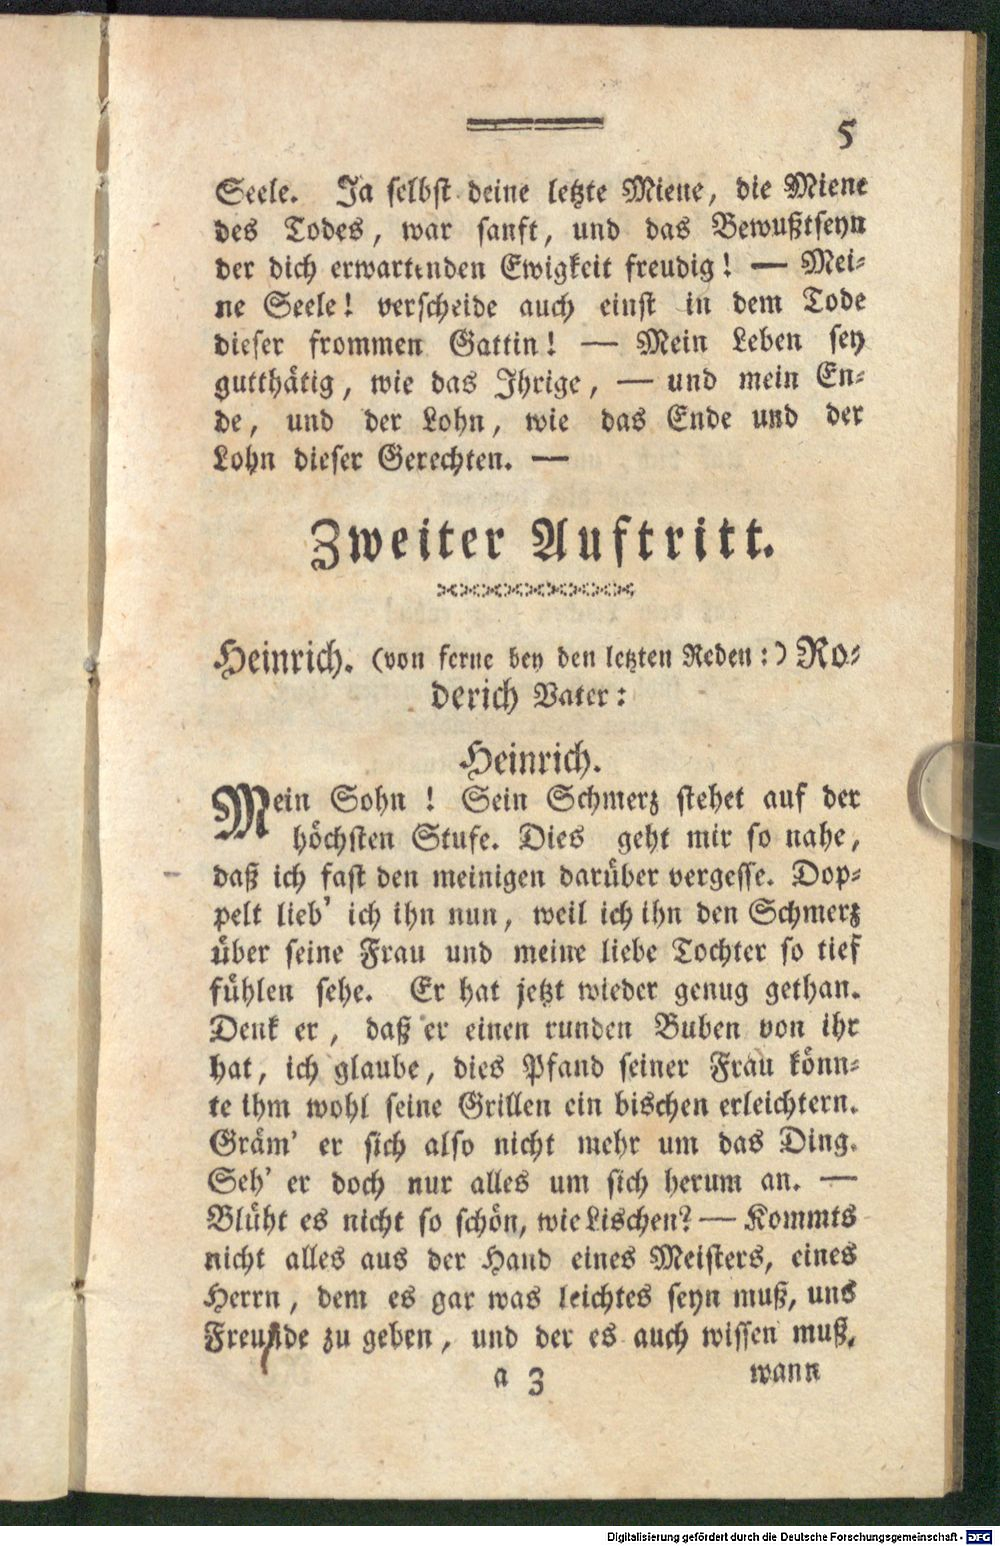 5
Seele. Ja selbst deine letzte Miene, die Miene
des Todes, war sanft, und das Bewußtseyn
der dich erwartenden Ewigkeit freudig! — Mei-
ne Seele! verscheide auch einst in dem Tode
dieser frommen Gattin! — Mein Leben sey
gutthätig, wie das Ihrige, — und mein En-
de, und der Lohn, wie das Ende und der
Lohn dieser Gerechten. —
Zweiter Auftritt.
Heinrich. (von ferne bey den letzten Reden:) Ro-
derich Vater:
Heinrich.
Mein Sohn! Sein Schmerz stehet auf der
höchsten Stufe. Dies geht mir so nahe,
daß ich fast den meinigen darüber vergesse. Dop-
pelt lieb' ich ihn nun, weil ich ihn den Schmerz
über seine Frau und meine liebe Tochter so tief
fühlen sehe. Er hat jetzt wieder genug gethan.
Denk er, daß er einen runden Buben von ihr
hat, ich glaube, dies Pfand seiner Frau könn-
te ihm wohl seine Grillen ein bischen erleichtern.
Gräm' er sich also nicht mehr um das Ding.
Seh' er doch nur alles um sich herum an. —
Blüht es nicht so schön, wie Lischen? — Kommts
nicht alles aus der Hand eines Meisters, eines
Herrn, dem es gar was leichtes seyn muß, uns
Freunde zu geben, und der es auch wissen muß,
a 3 wann
Digitalisierung gefördert durch die Deutsche Forschungsgemeinschaft - DFG